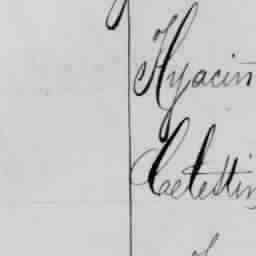 Hyacin
Celestin